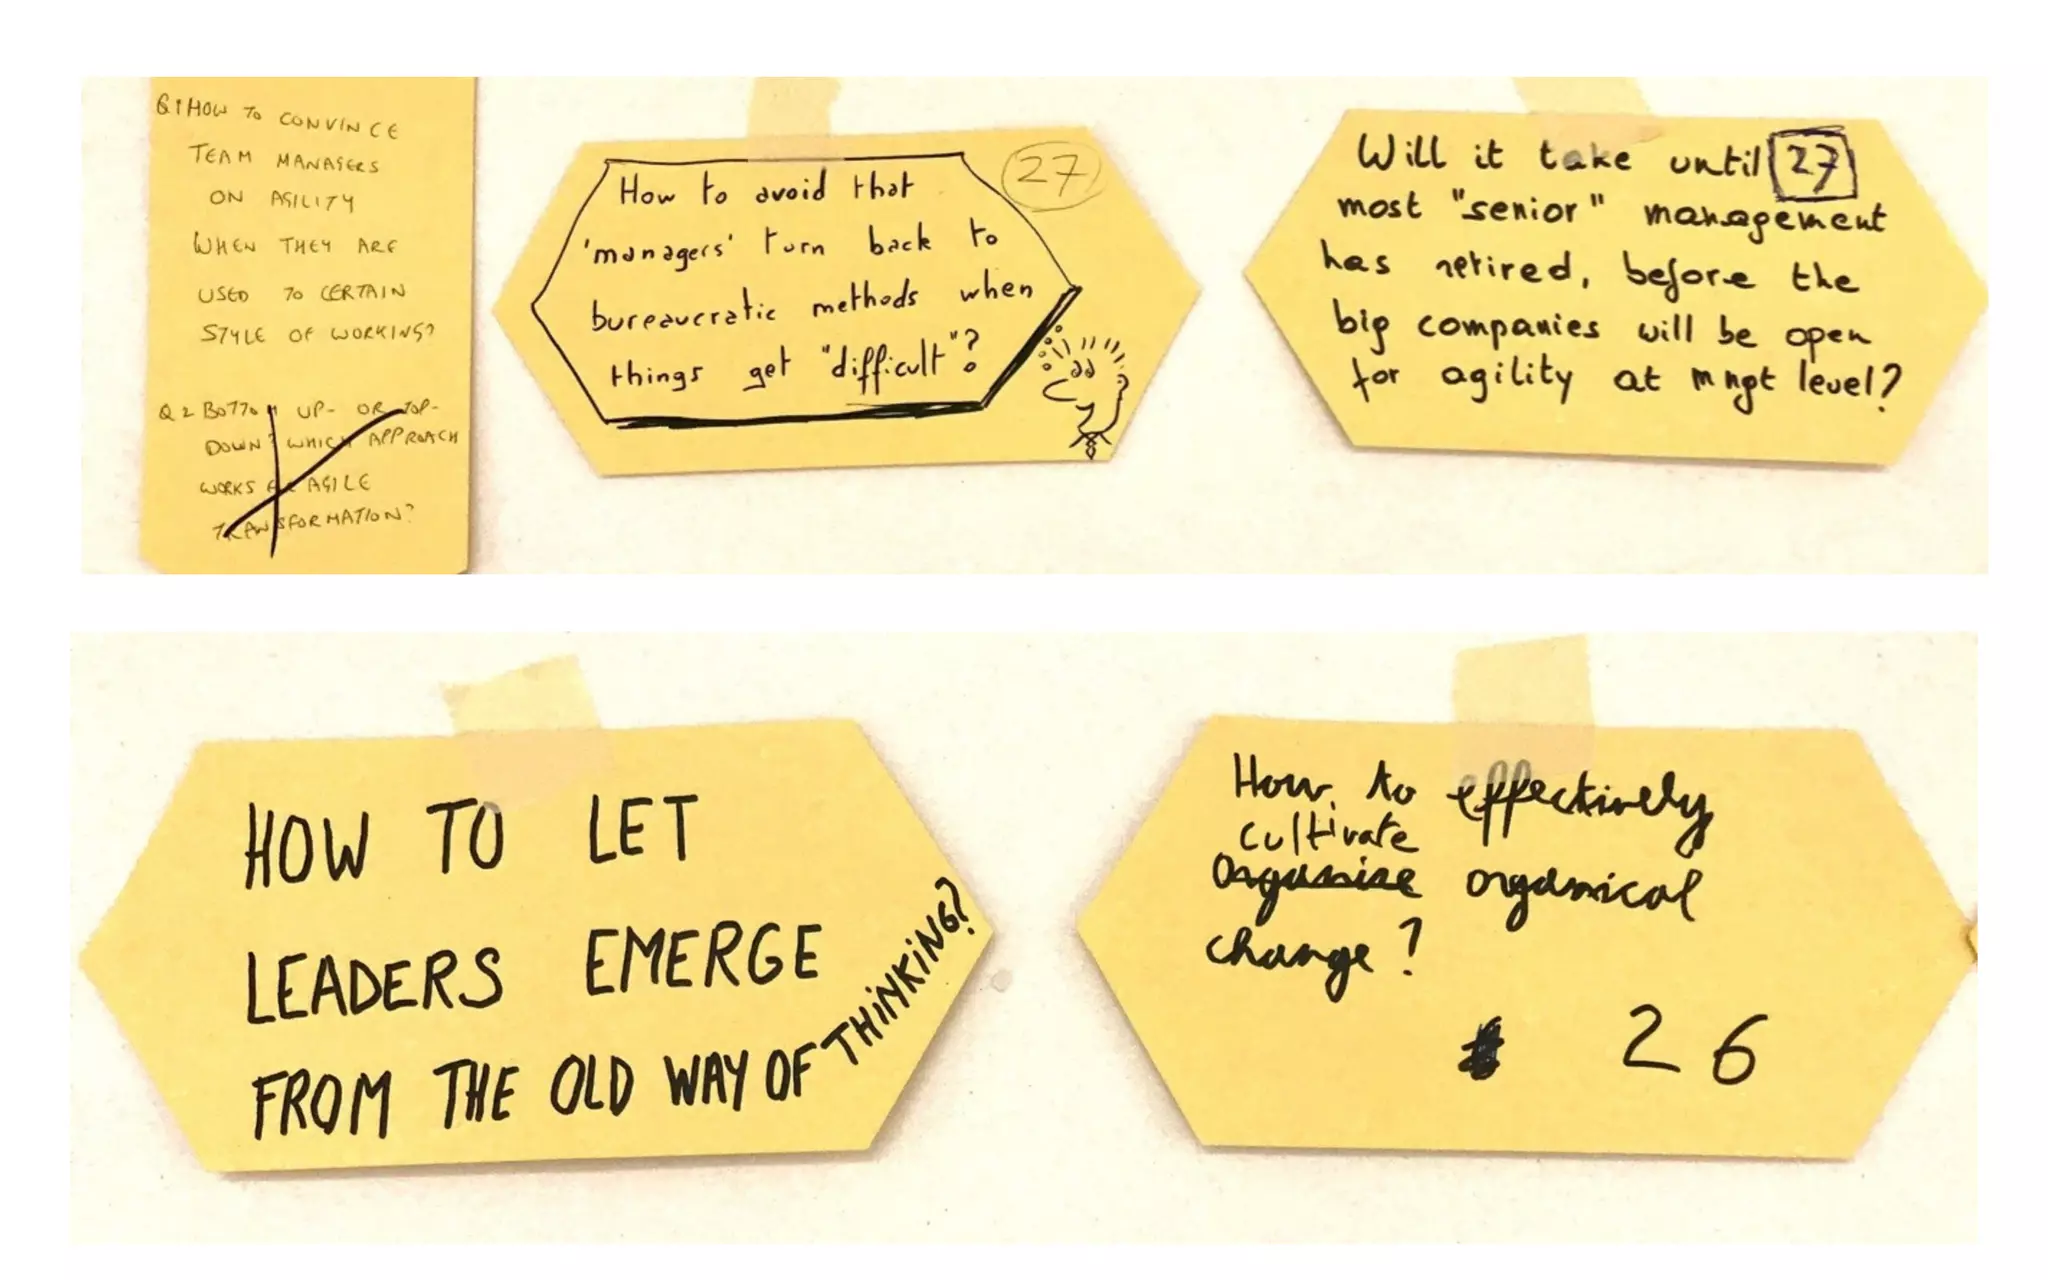 Q1 HOW TO CONVINCE
TEAM MANAGERS
ON AGILITY
WHEN THEY ARE
USED TO CERTAIN
STYLE OF WORKING?
Q2 BOTTOM UP- OR TOP-
DOWN? WHICH APPROACH
WORKS FOR AGILE
TRANSFORMATION?
27
How to avoid that
'managers' turn back to
bureaucratic methods when
things get "difficult"?
Will it take until 27
most "senior" management
has retired, before the
big companies will be open
for agility at mngt level?
HOW TO LET
LEADERS EMERGE
FROM THE OLD WAY OF THINKING?
How to effectively
cultivate
Organise organical
change?
26